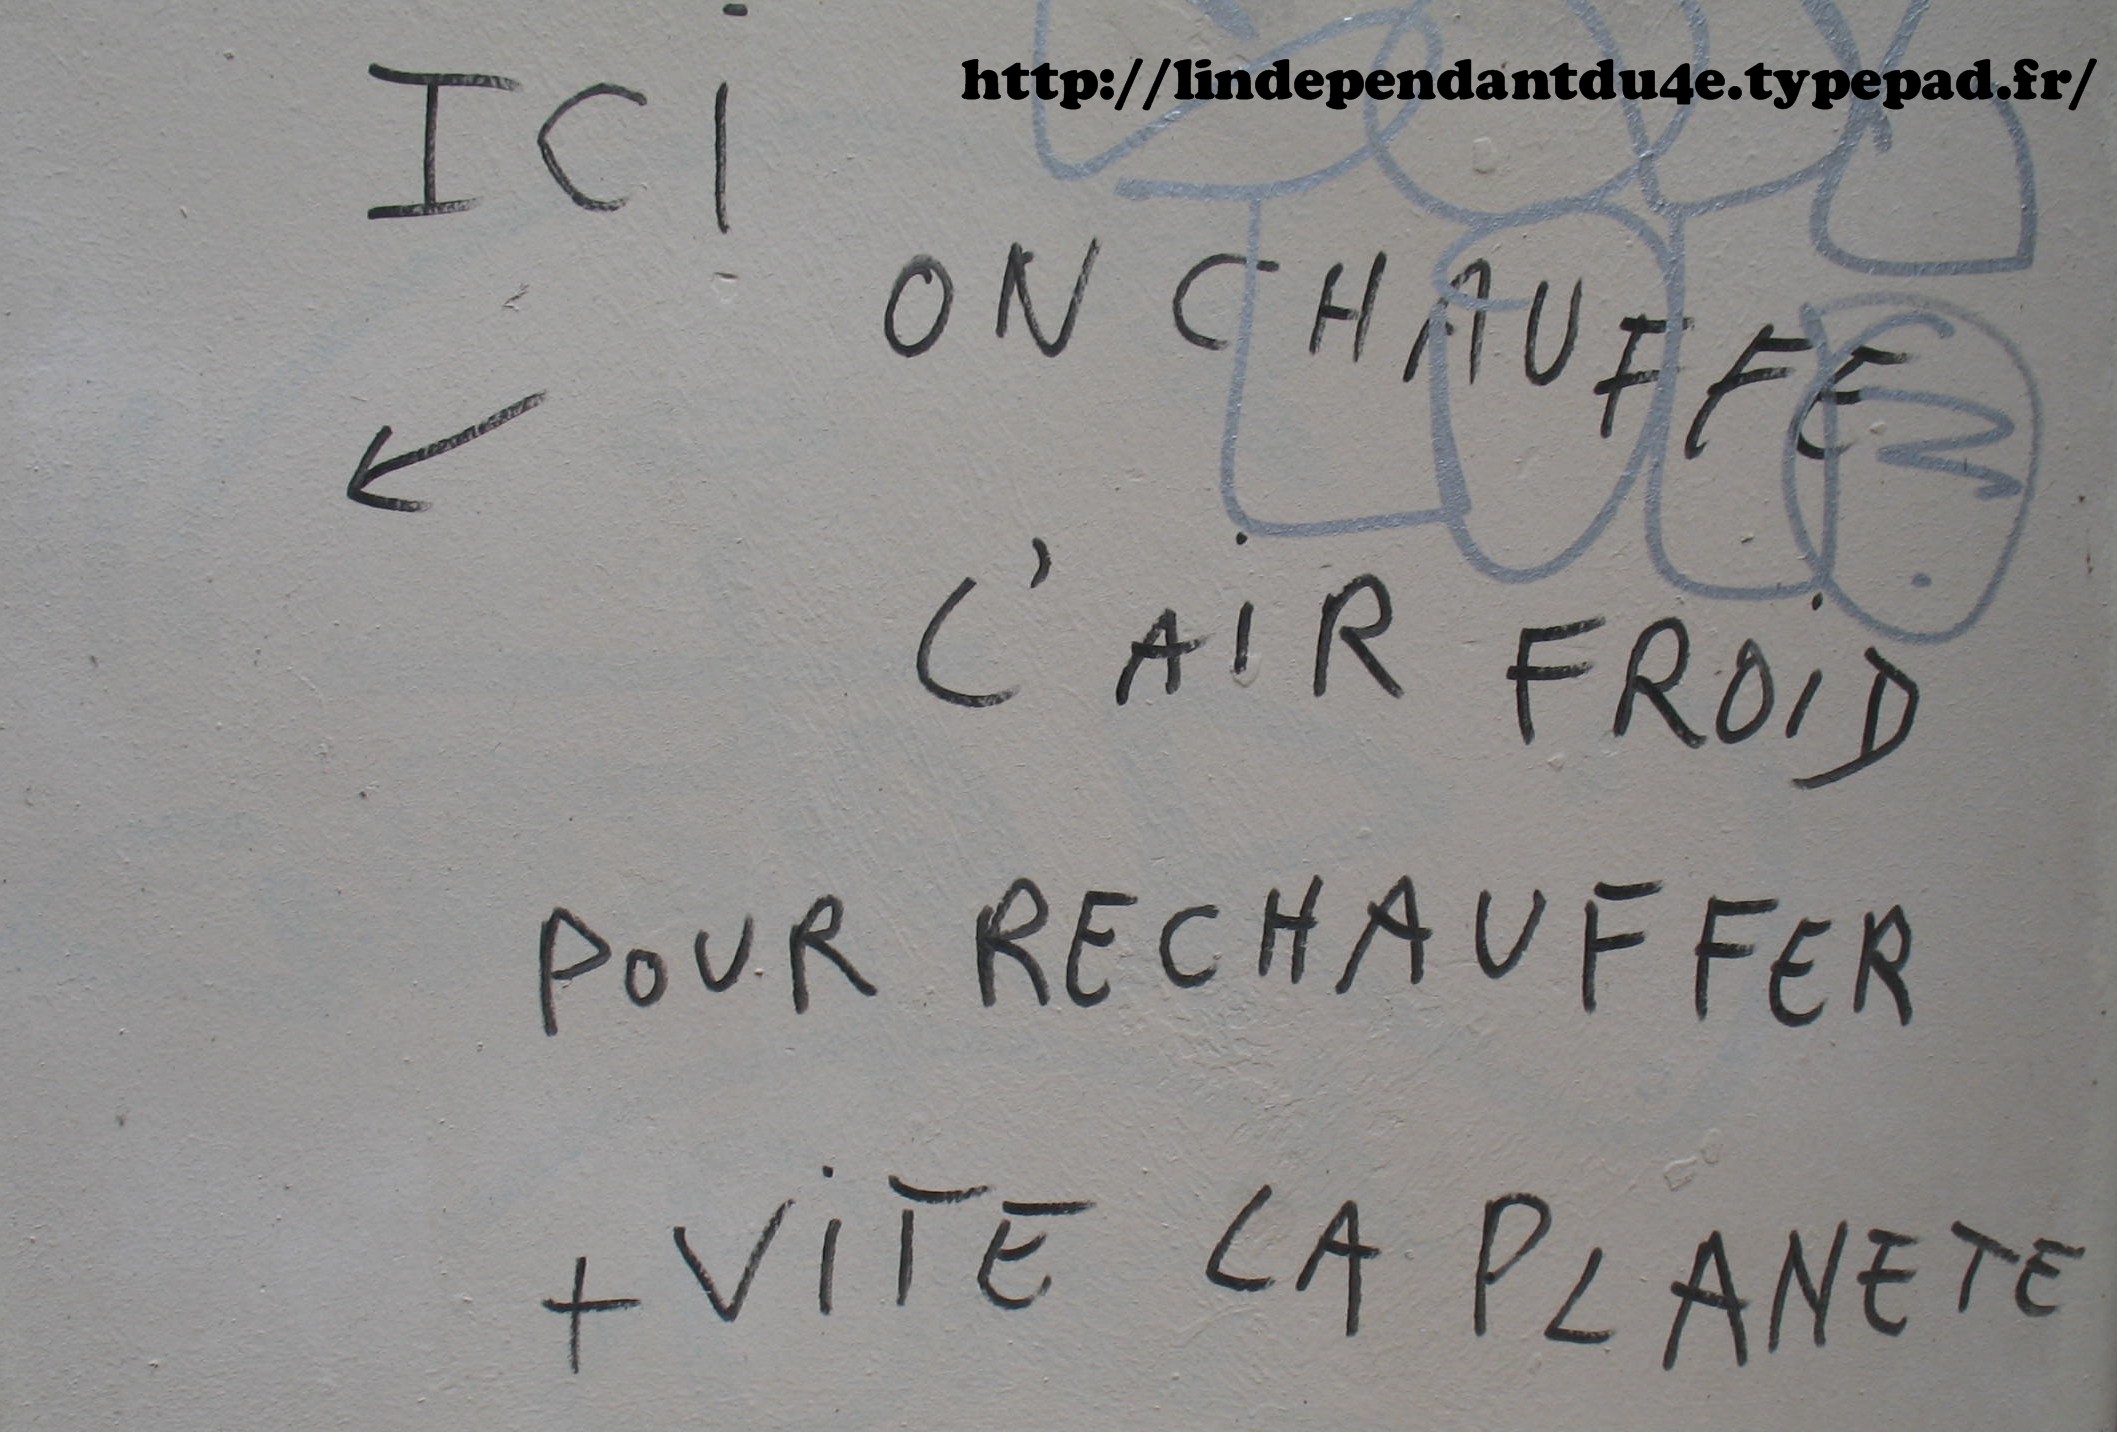 http://lindependantdu4e.typepad.fr/
ICi
ON CHAUFFE
L'AiR FROiD
POUR RECHAUFFER
+ ViTE LA PLANETE